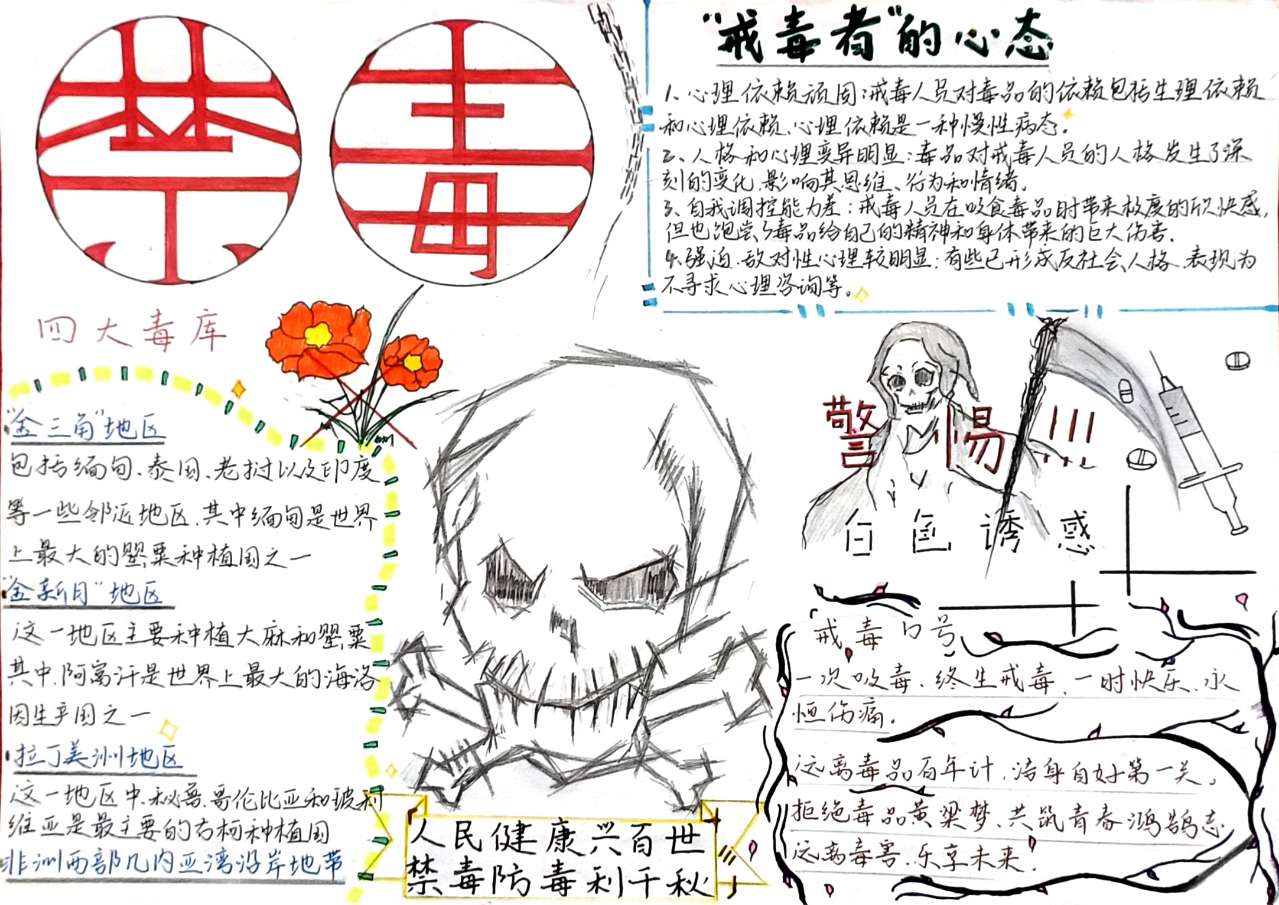 禁毒
"戒毒者"的心态
1、心理依赖顽固:戒毒人员对毒品的依赖包括生理依赖
和心理依赖、心理依赖是一种慢性病态。
2、人格和心理变异明显:毒品对戒毒人员的人格发生了深
刻的变化,影响其思维、行为和情绪。
3、自我调控能力差:戒毒人员在吸食毒品时带来极度的欣快感,
但也饱尝了毒品给自己的精神和身体带来的巨大伤害.
4.强迫、敌对性心理较明显:有些已形成反社会人格、表现为
不寻求心理咨询等。
四大毒库
"金三角"地区
包括缅甸、泰国、老挝以及印度
等一些邻近地区,其中缅甸是世界
上最大的罂粟种植国之一
"金新月"地区
这一地区主要种植大麻和罂粟
其中,阿富汗是世界上最大的海洛
因生产国之一
拉丁美洲地区
这一地区中,秘鲁、哥伦比亚和玻利
维亚是最主要的古柯种植国
非洲西部几内亚湾沿岸地带
警惕!!!
白色诱惑
戒毒口号
一次吸毒、终生戒毒、一时快乐、永
恒伤痛.
远离毒品百年计,洁身自好第一关。
拒绝毒品黄梁梦、共筑青春鸿鹄志
远离毒害、乐享未来!
人民健康兴百世
禁毒防毒利千秋